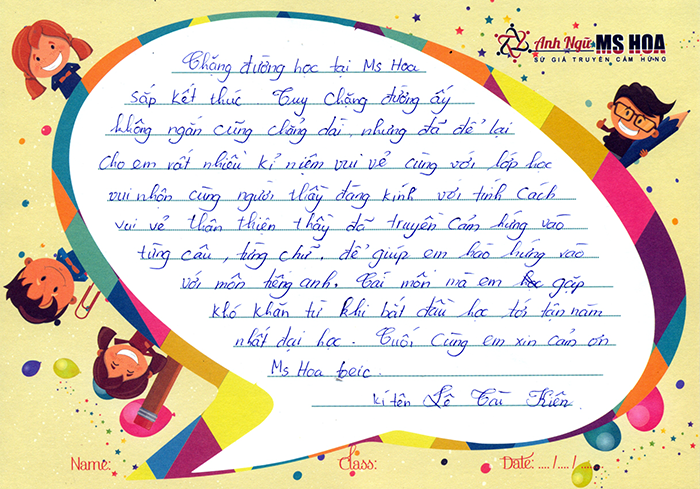 Anh Ngữ MS HOA
SỨ GIẢ TRUYỀN CẢM HỨNG
Chặng đường học tại Ms Hoa
sắp kết thúc. Tuy chặng đường ấy
không ngắn cũng chẳng dài, nhưng đã để lại
cho em rất nhiều kỉ niệm vui vẻ cùng với lớp học
vui nhộn cùng người thầy đáng kính với tính cách
vui vẻ thân thiện thầy đã truyền cảm hứng vào
từng câu, từng chữ. để giúp em hào hứng vào
với môn tiếng anh. Cái môn mà em gặp
khó khăn từ khi bắt đầu học tới tận năm
nhất đại học. Cuối cùng em xin cảm ơn
Ms Hoa toeic.
kí tên Lê Tài Kiên
Name: Class: Date: ..../..../....